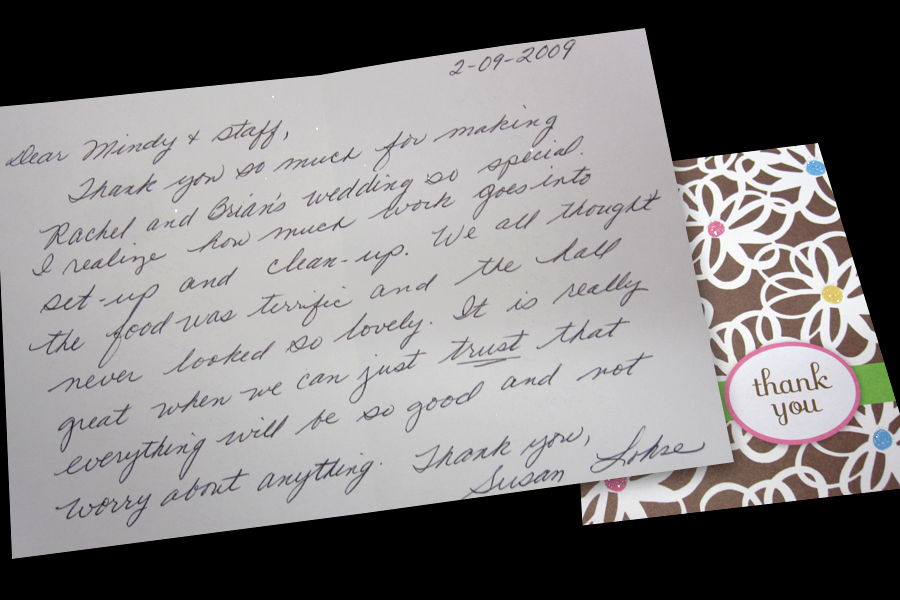 2-09-2009
Dear Mindy & Staff,
Thank you so much for making
Rachel and Brian's wedding so special.
I realize how much work goes into
set-up and clean-up. We all thought
the food was terrific and the hall
never looked so lovely. It is really
great when we can just trust that
everything will be so good and not
worry about anything. Thank you,
Susan Lohse
thank
you